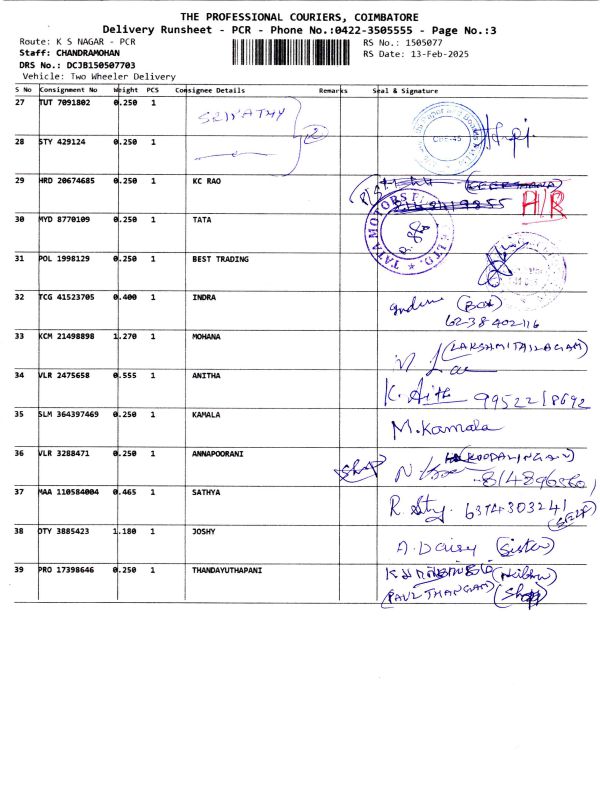 THE PROFESSIONAL COURIERS, COIMBATORE
Delivery Runsheet - PCR - Phone No.:0422-3505555 - Page No.:3
Route: K S NAGAR - PCR
RS No.: 1505077
Staff: CHANDRAMOHAN
RS Date: 13-Feb-2025
DRS No.: DCJB150507703
Vehicle: Two Wheeler Delivery
S No Consignment No Weight PCS Consignee Details Remarks Seal & Signature
27 TUT 7091802 0.250 1
28 STY 429124 0.250 1
CBE-45
29 HRD 20674685 0.250 1 KC RAO
H/R
30 MYD 8770109 0.250 1 TATA
TATA MOTORS
LTD.
31 POL 1998129 0.250 1 BEST TRADING
32 TCG 41523705 0.400 1 INDRA (Box)
6238402116
33 KCM 21498898 1.270 1 MOHANA
34 VLR 2475658 0.555 1 ANITHA
35 SLM 364397469 0.250 1 KAMALA M.Kamala
36 VLR 3288471 0.250 1 ANNAPOORANI
37 MAA 110584004 0.465 1 SATHYA R. 6374303241
(SELF)
38 OTY 3885423 1.180 1 JOSHY A.Daisy (Sister)
39 PRO 17398646 0.250 1 THANDAYUTHAPANI
(PAUL THANGAM)